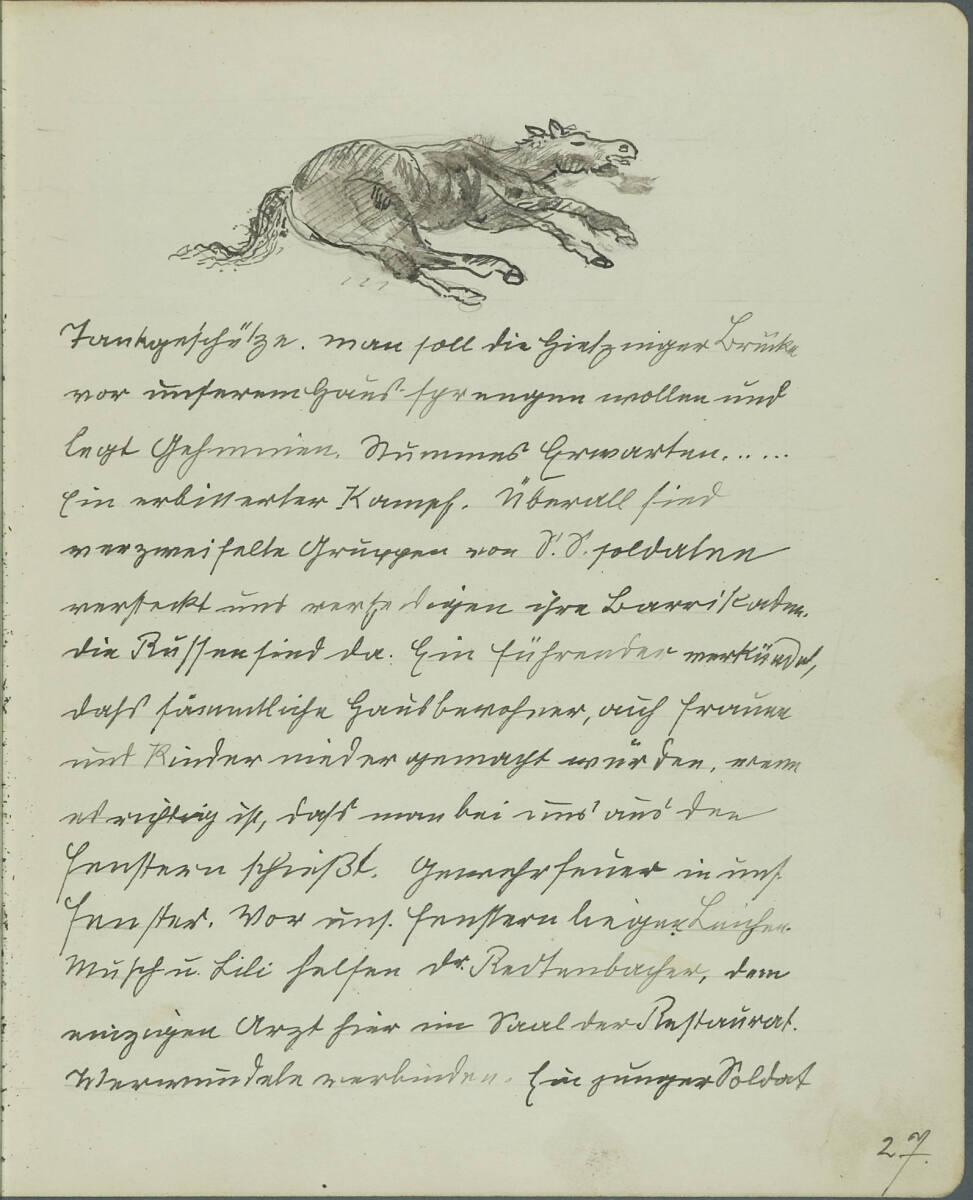 Tankgeschütze. man soll die Hietzinger Brücke
vor unserem Haus sprengen wollen und
legt Gehminen. Stummes Erwarten.....
Ein erbitterter Kampf. Überall sind
verzweifelte Gruppen von S.S. soldaten
versteckt und verteidigen ihre Barrikaden.
die Russen sind da. Ein führender verkündet,
dass sämmtliche Hausbewohner, auch Frauen
und Kinder niedergemacht würden, wenn
es richtig ist, dass man bei uns aus den
Fenstern schießt. Gewehrfeuer in uns.
Fenster. Vor uns. Fenstern liegen Leichen.
Musch u. Lili helfen dr. Redtenbacher, dem
einzigen Arzt hier im Saal der Restaurat.
Verwundete verbinden. Ein junger Soldat
27.